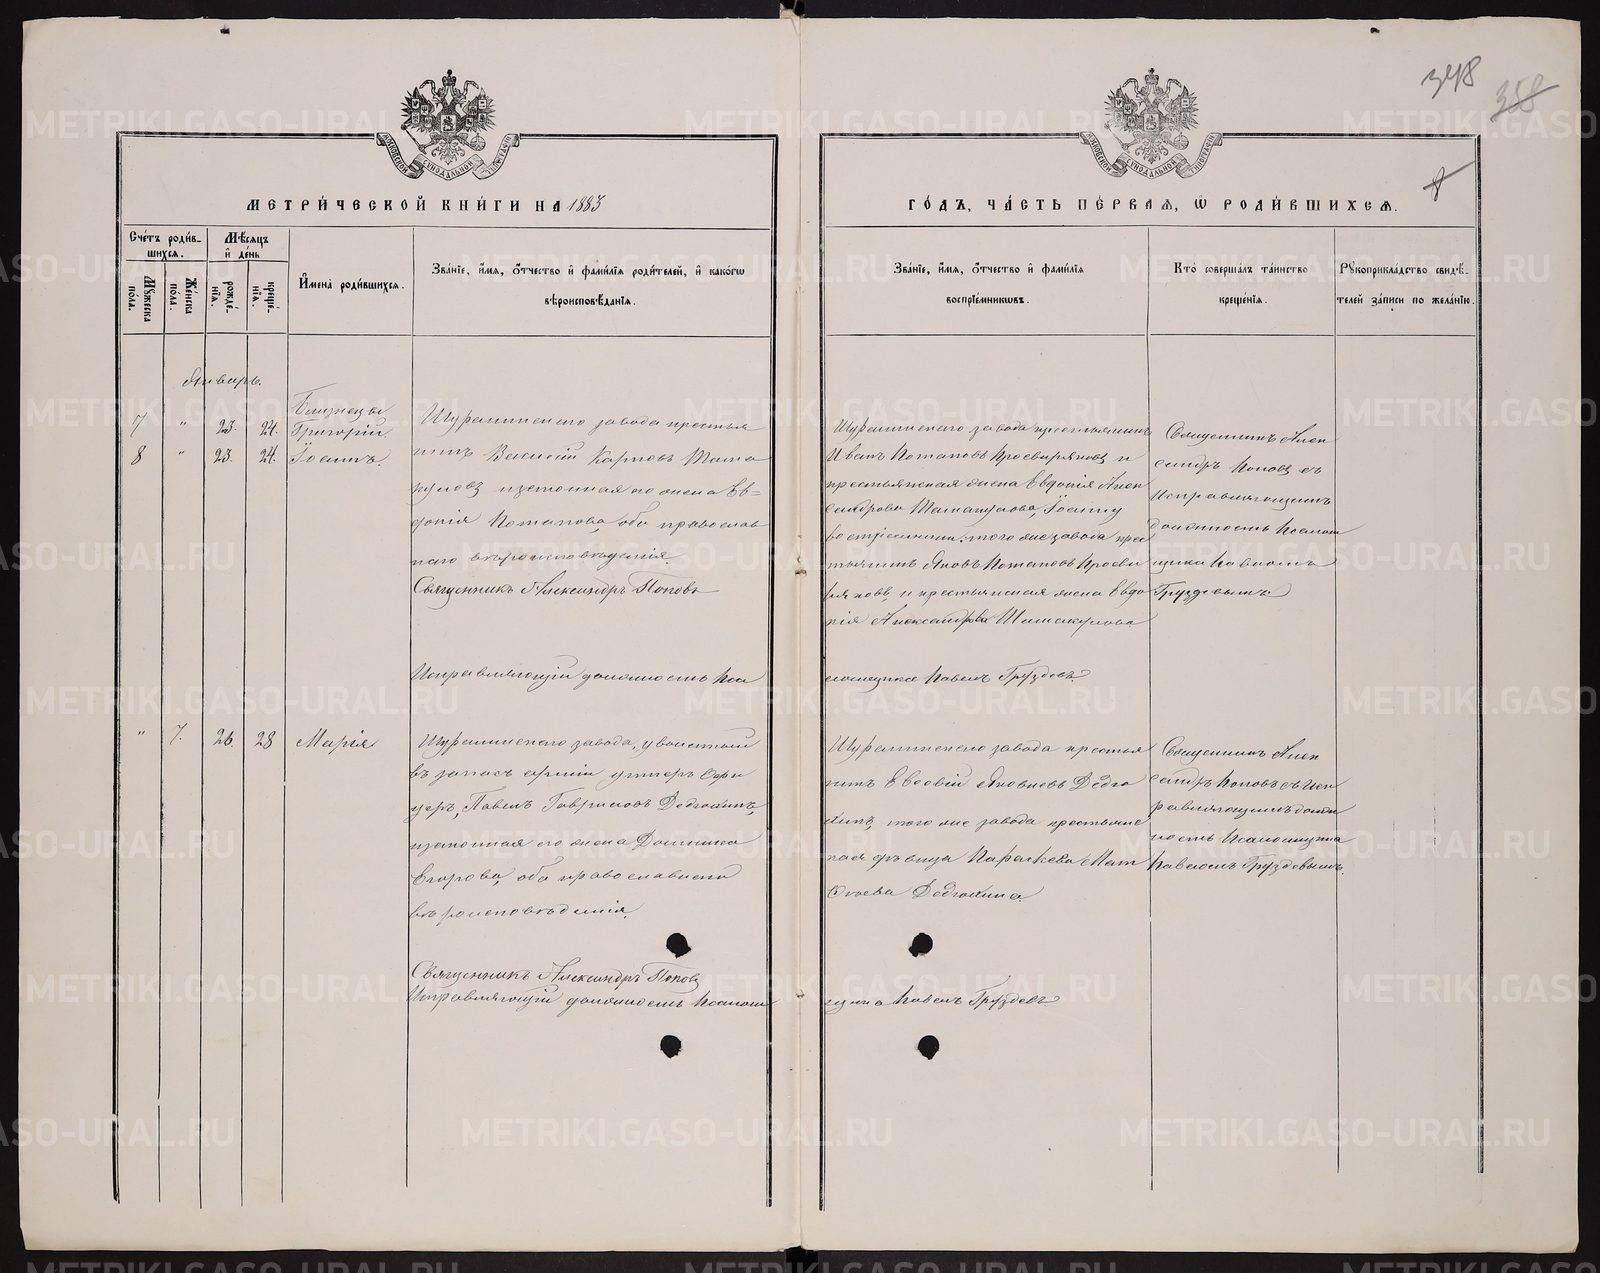 348 358
8
МЕТРИ́ЧЕСКОЙ КНИ́ГИ НА 1883
ГО́ДЪ, ЧА́СТЬ ПЕ́РВАЯ, Ѡ РОДИ́ВШИХСЯ.
Сче́тъ роди́в-
шихся.
Мѣ́сяцъ
и҆ де́нь
Мꙋжеска
по́ла.
Же́нска
по́ла.
рожде́-
нїѧ.
креще́-
нїѧ.
И҆мена̀ роди́вшихся.
Зва́нїе, и҆́мя, ѻ҆́тчество и҆ фами́лїя роди́телей, и҆ како́гѡ
вѣроисповѣ́данїя.
Зва́нїе, и҆́мя, ѻ҆́тчество и҆ фами́лїя
воспрїе́мникѡвъ.
Кто̀ соверша́лъ та́инство
креще́нїя.
Рꙋкоприкла́дство свидѣ́-
телей за́писи по жела́нїю.
Январь.
Близнецы
7 " 23. 24. Григорій
8 " 23. 24. Іоаннъ.
Шуралинскаго завода крестья
нинъ Василій Карповъ Шама
и законная его жена Ев=
докія Потапова, оба православ
наго вѣроисповѣданія.
Священникъ Александръ Поповъ
Исправляющій должность Пса
Шуралинскаго завода крестьянинъ
Иванъ Потаповъ Просвиряковъ и
крестьянская жена Евдокія Алек
сандрова Іоанну
воспріемники: того же завода крес
тьянинъ Яковъ Потаповъ Просви
ряковъ, и крестьянская жена Евдо
кія Александрова
ломщика Павелъ Груздевъ.
Священникъ Алек
сандръ Поповъ съ
Исправляющимъ
должность Псалом
щика Павломъ
Груздевымъ.
" 7. 26. 28 Марія
Шуралинскаго завода, уволенный
въ запасъ арміи унтеръ Офи
церъ, Павелъ Гавриловъ Дедюхинъ,
и законная его жена Домника
Егорова, оба православнаго
вѣроисповѣданія.
Священникъ Александръ Поповъ
Исправляющій должность Псалом
Шуралинскаго завода крестья
нинъ Евсевій Яковлевъ Дедю
хинъ, того же завода крестьянс
кая дѣвица Параскева Мат
ѳеева Дедюхина.
щика Павелъ Груздевъ
Священникъ Алек
сандръ Поповъ съ Исп
равляющимъ долж
ность Псаломщика
Павломъ Груздевымъ.
METRIKI.GASO-URAL.RU